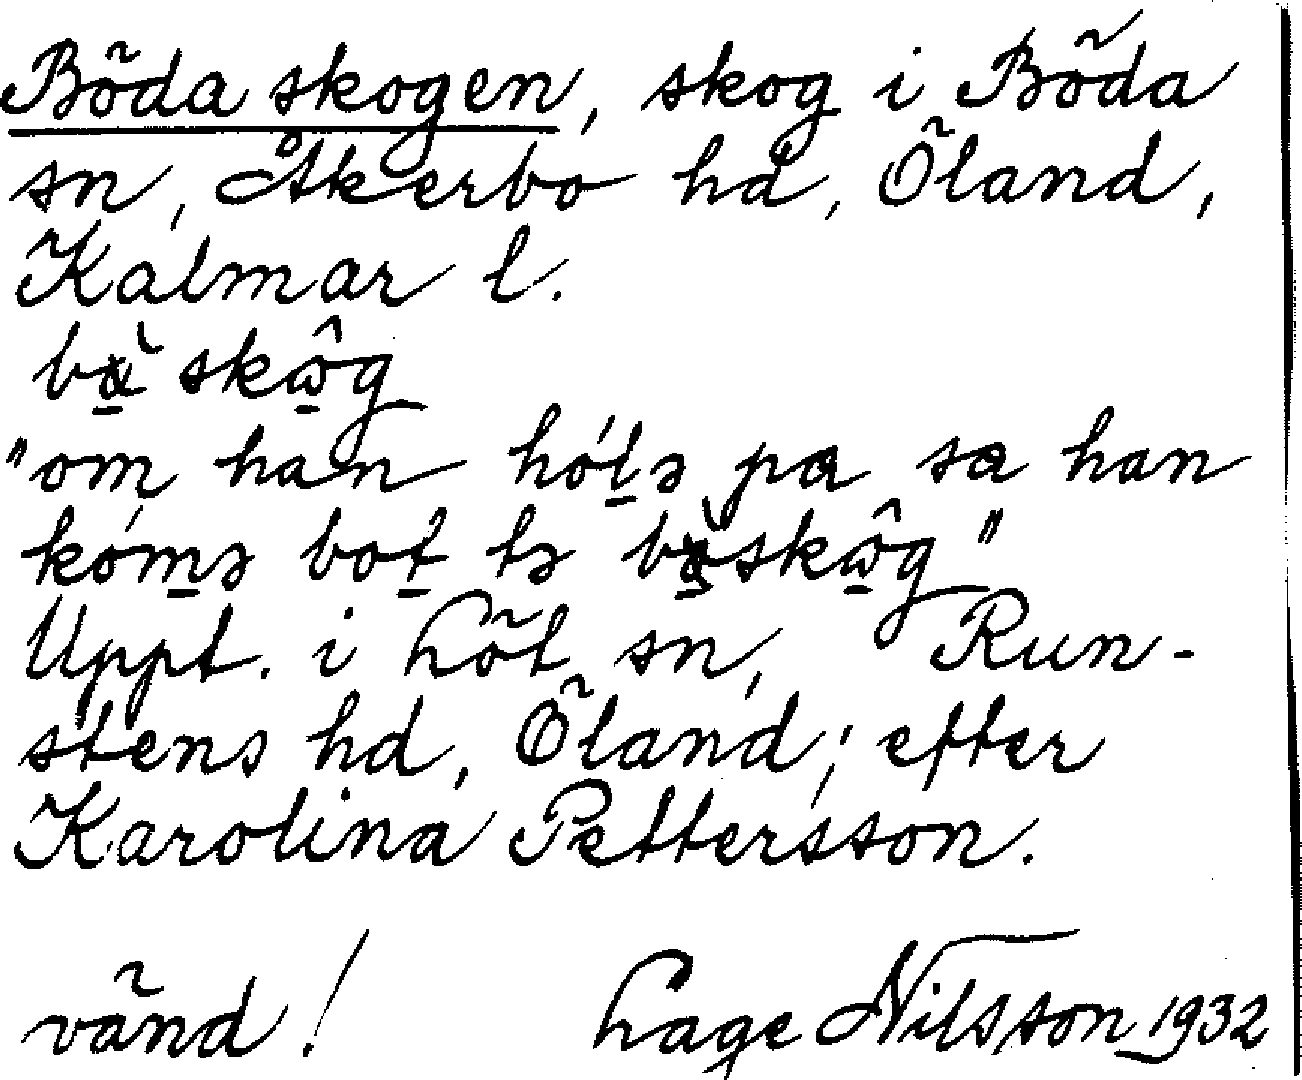 Böda skogen, skog i Böda
sn, Åkerbo hd, Öland,
Kalmar l.
skω̂g
"om han hólə pα sα han
kómə bot tə skω̂g"
Uppt. i Löt sn, Run-
stens hd, Öland; efter
Karolina Pettersson.
vänd! Lage Nilsson 1932